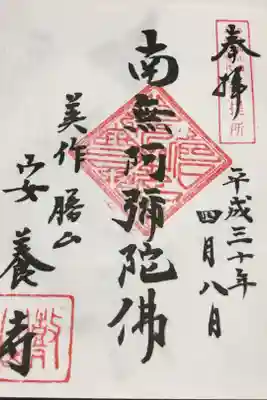 奉拝
平成三十年
四月八日
南無阿弥陀佛
美作 勝山
安養寺